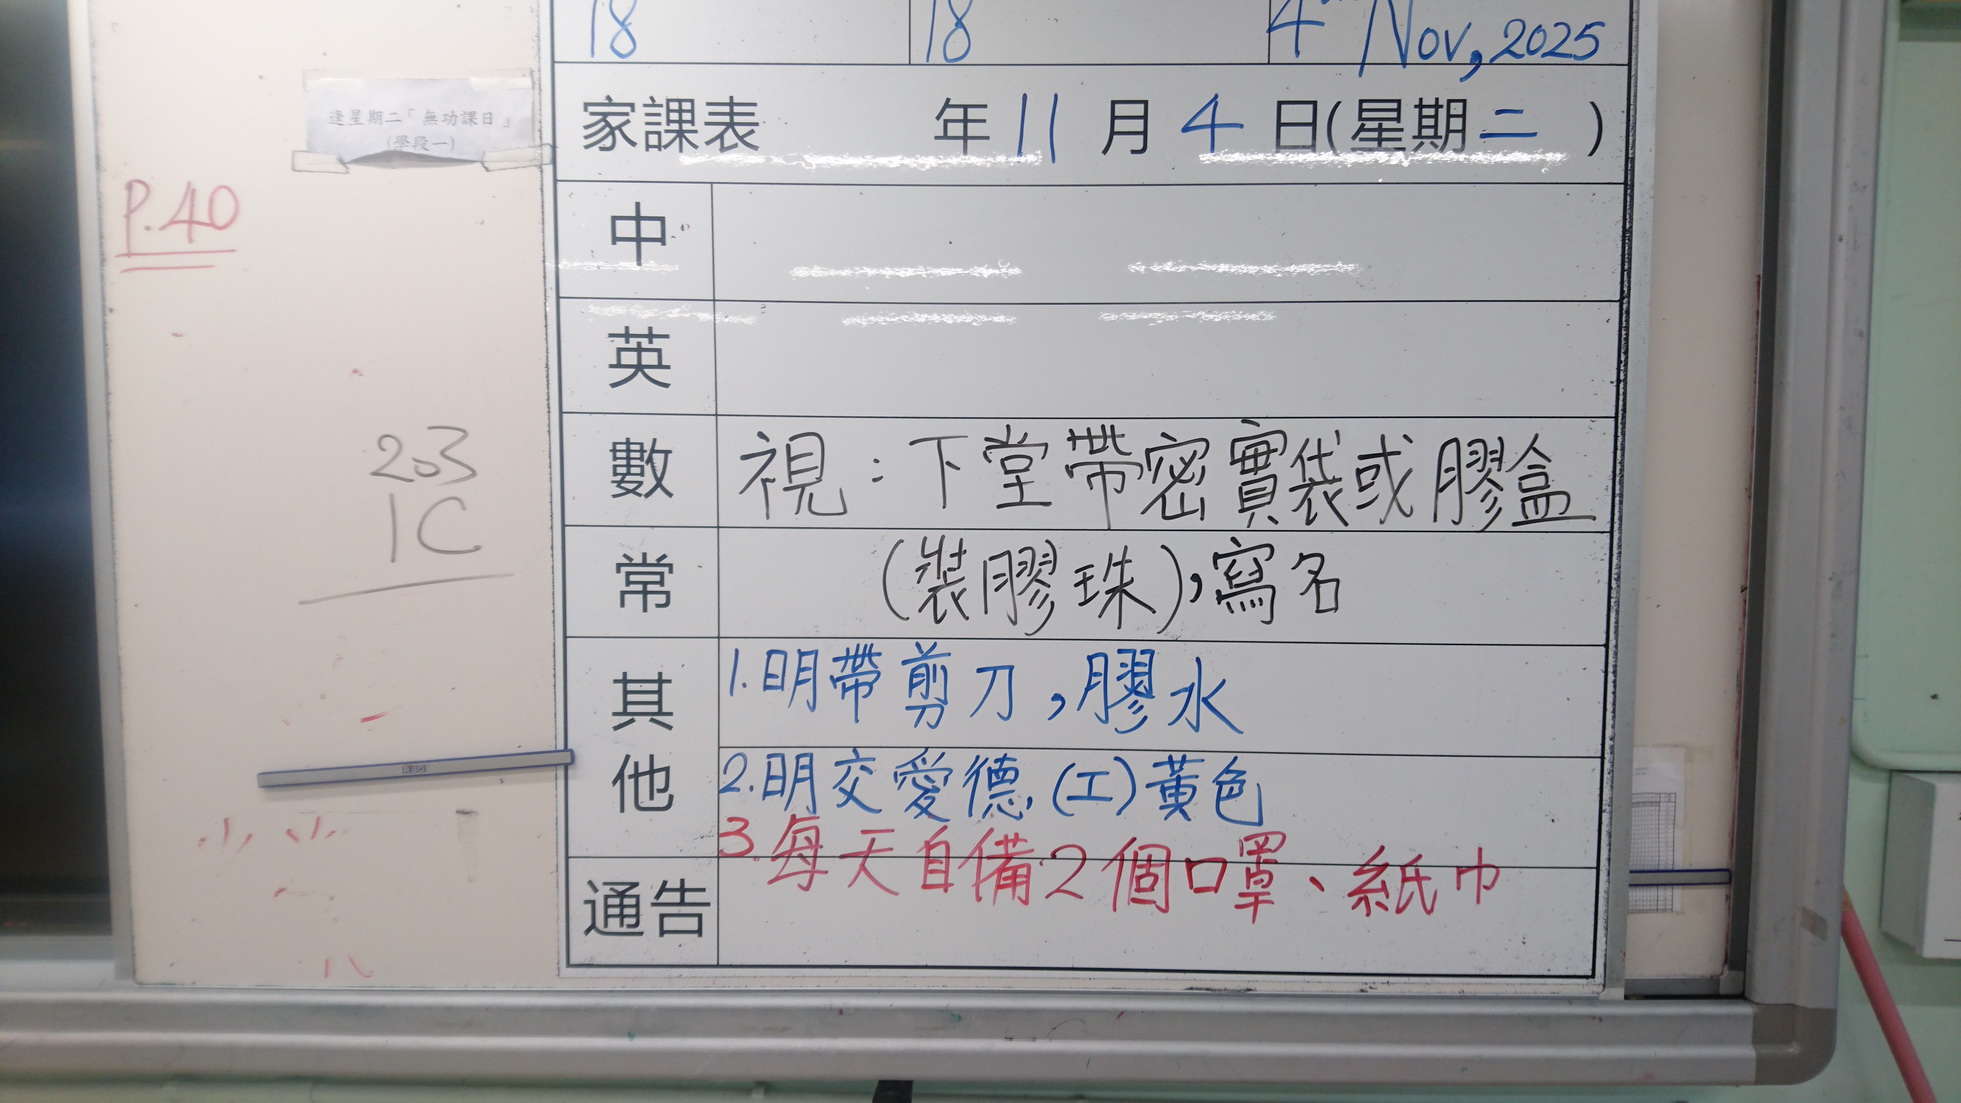 18 18 4th Nov, 2025
逢星期二「無功課日」
(學段一)
家課表 年 11 月 4 日(星期 二 )
P.40
中
英
203
1C
數 視：下堂帶密實袋或膠盒
常 (裝膠珠),寫名
其他
1.明帶剪刀,膠水
2.明交愛德(工)黃色
3.每天自備2個口罩、紙巾
通告